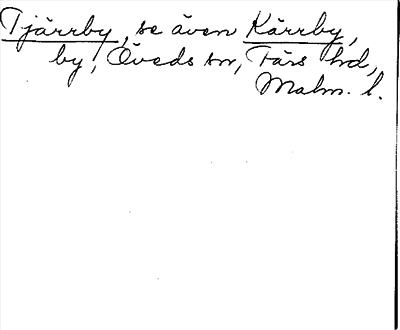 Tjärrby, se även Kärrby,
by, Öveds sn, Färs hd,
Malm. l.